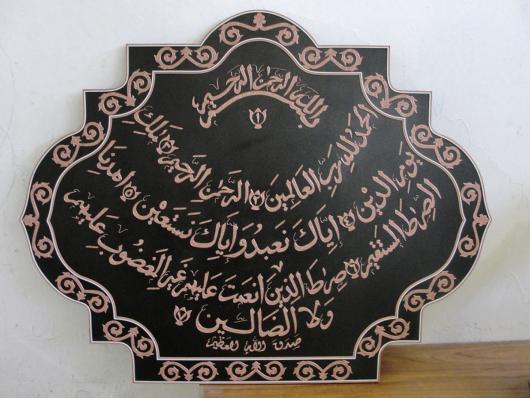 بسم الله الرحمن الرحيم
١
الحمد لله رب العالمين ٢ الرحمن الرحيم ٣ ملك
يوم الدين ٤ إياك نعبد وإياك نستعين ٥ اهدنا
الصراط المستقيم ٦ صراط الذين انعمت عليهم غير المغضوب عليهم
ولا الضالين ٧
صدق الله العظيم